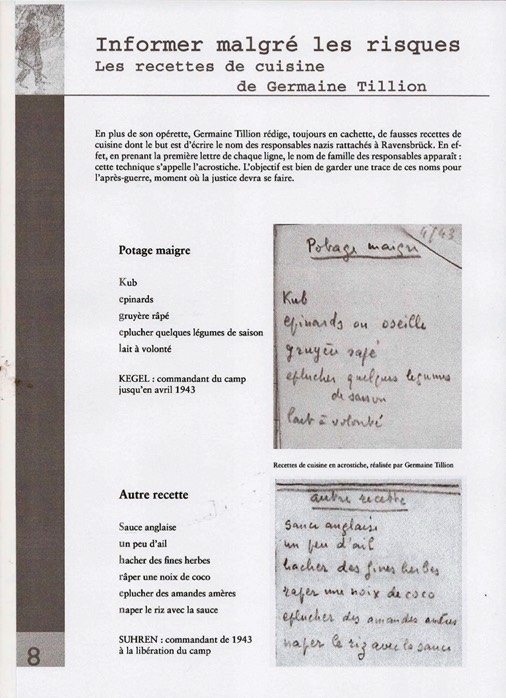 Informer malgré les risques
Les recettes de cuisine
de Germaine Tillion
En plus de son opérette, Germaine Tillion rédige, toujours en cachette, de fausses recettes de
cuisine dont le but est d'écrire le nom des responsables nazis rattachés à Ravensbrück. En ef-
fet, en prenant la première lettre de chaque ligne, le nom de famille des responsables apparaît :
cette technique s'appelle l'acrostiche. L'objectif est bien de garder une trace de ces noms pour
l'après-guerre, moment où la justice devra se faire.
Potage maigre
Kub
epinards
gruyère râpé
eplucher quelques légumes de saison
lait à volonté
KEGEL : commandant du camp
jusqu'en avril 1943
4/43
Potage maigre
Kub
epinards ou oseille
gruyère rapé
eplucher quelques legumes
de saison
lait à volonté
Recettes de cuisine en acrostiche, réalisée par Germaine Tillion
Autre recette
Sauce anglaise
un peu d'ail
hacher des fines herbes
râper une noix de coco
eplucher des amandes amères
naper le riz avec la sauce
SUHREN : commandant de 1943
à la libération du camp
autre recette
Sauce anglaise
un peu d'ail
hacher des fines herbes
raper une noix de coco
eplucher des amandes amères
naper le riz avec la sauce
8